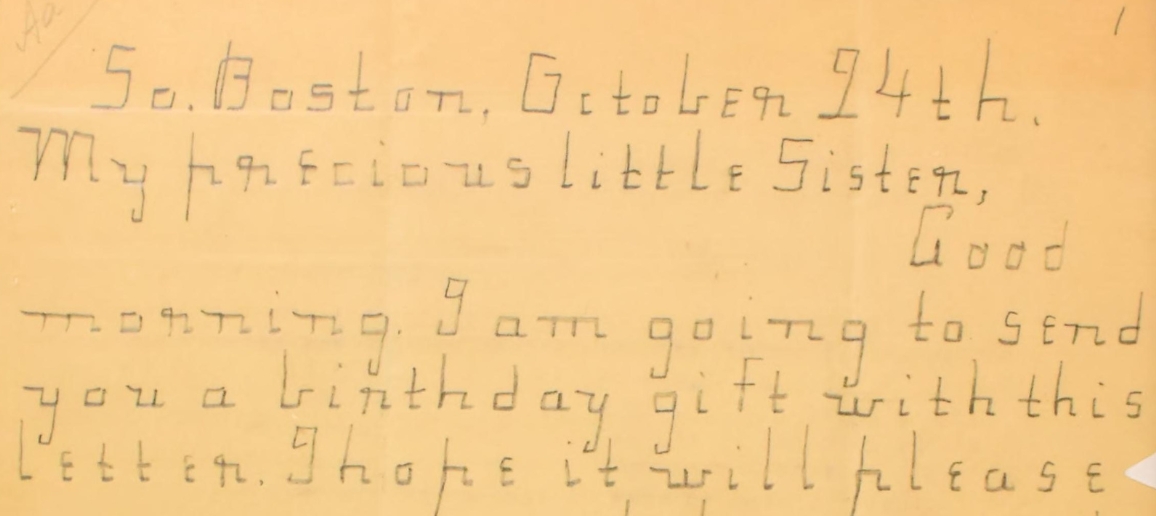 So. Boston, October 24th.
My precious little Sister,
Good
morning. I am going to send
you a birthday gift with this
letter. I hope it will please